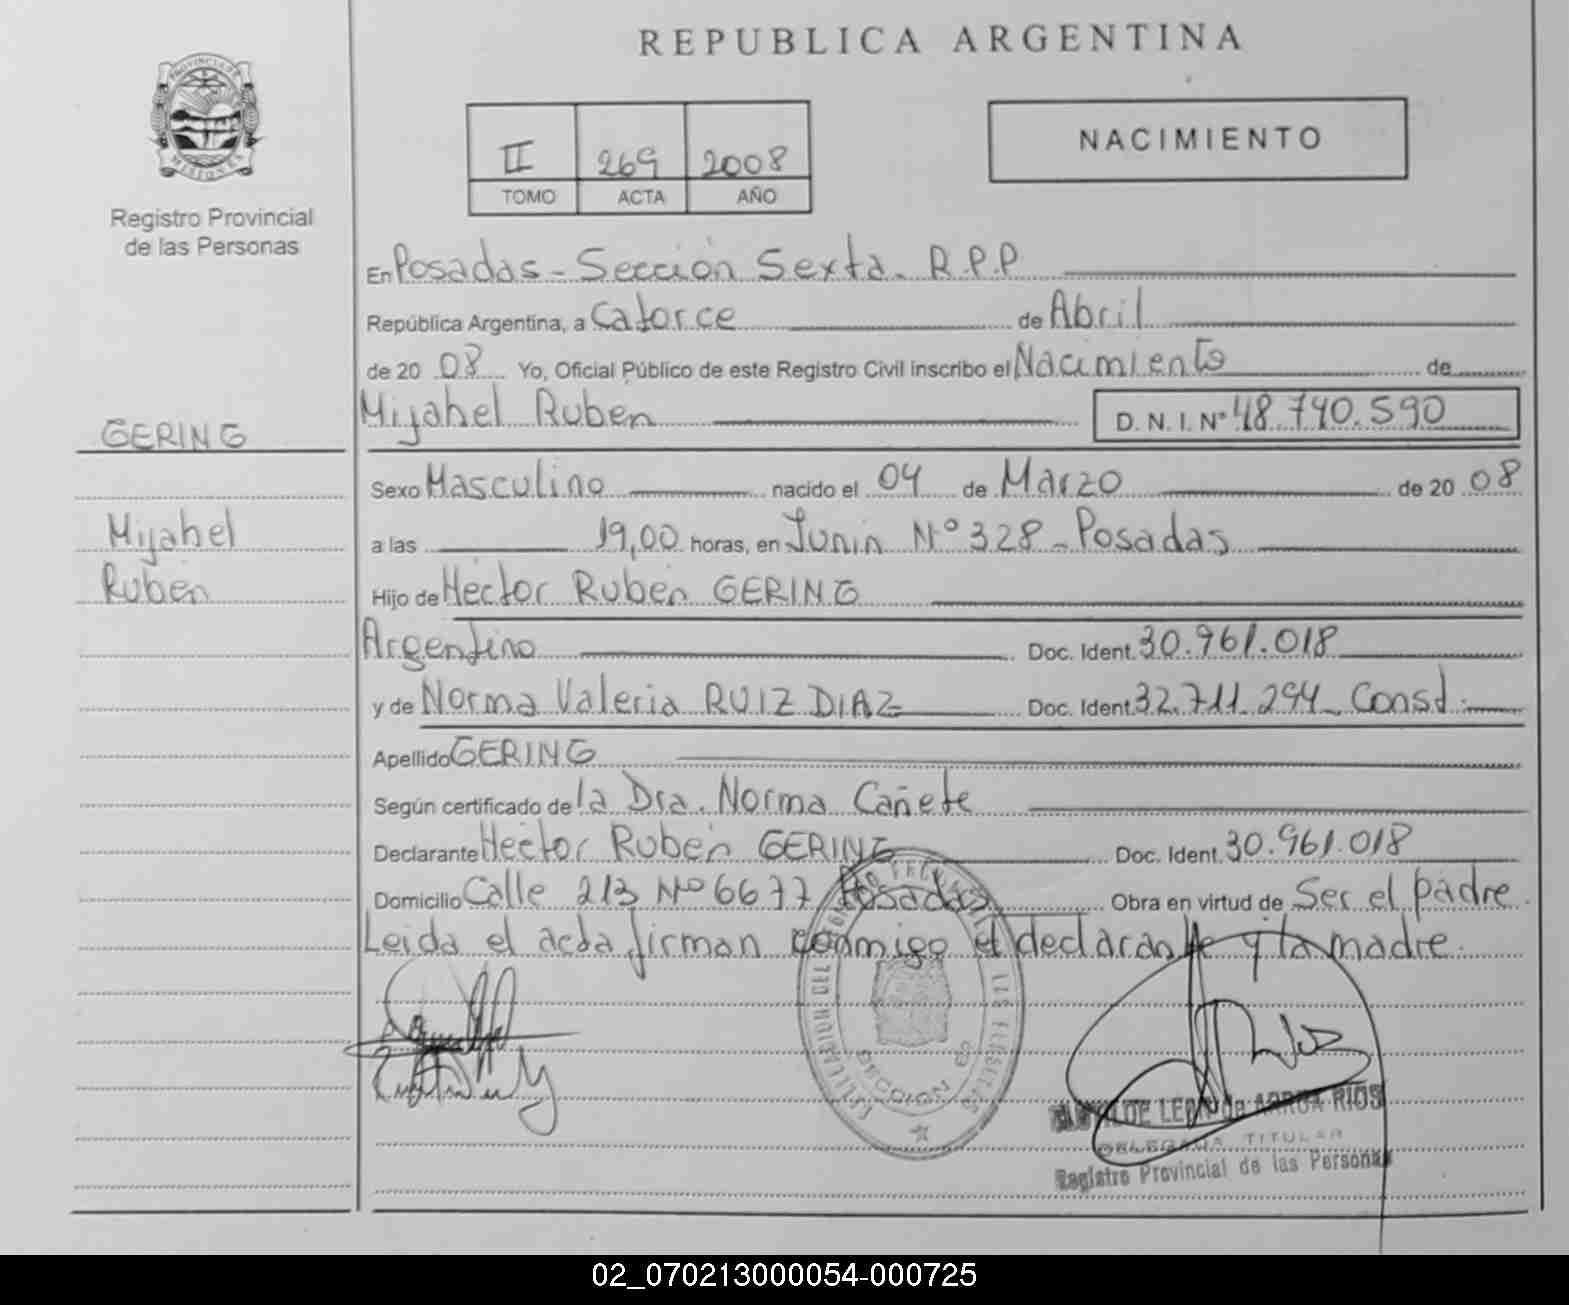 REPUBLICA ARGENTINA
PROVINCIA DE
MISIONES
Registro Provincial
de las Personas
II 269 2008
TOMO ACTA AÑO
NACIMIENTO
En Posadas - Sección Sexta. R.P.P
República Argentina, a Catorce de Abril
de 20 08 Yo, Oficial Público de este Registro Civil inscribo el Nacimiento de
Mijahel Ruben D.N.I. Nº 48.740.590
GERING
Mijahel
Rubén
Sexo Masculino nacido el 04 de Marzo de 20 08
a las 19,00 horas, en Junin Nº 328 - Posadas
Hijo de Héctor Rubén GERING
Argentino Doc. Ident. 30.961.018
y de Norma Valeria RUIZ DIAZ Doc. Ident. 32.711.294 Const.
Apellido GERING
Según certificado de la Dra. Norma Cañete
Declarante Héctor Rubén GERING Doc. Ident. 30.961.018
Domicilio Calle 213 Nº 6677 Posadas Obra en virtud de Ser el padre.
Leida el acta firman conmigo el declarante y la madre.
SECCION 6º
DELEGADA TITULAR
Registro Provincial de las Personas
02_070213000054-000725